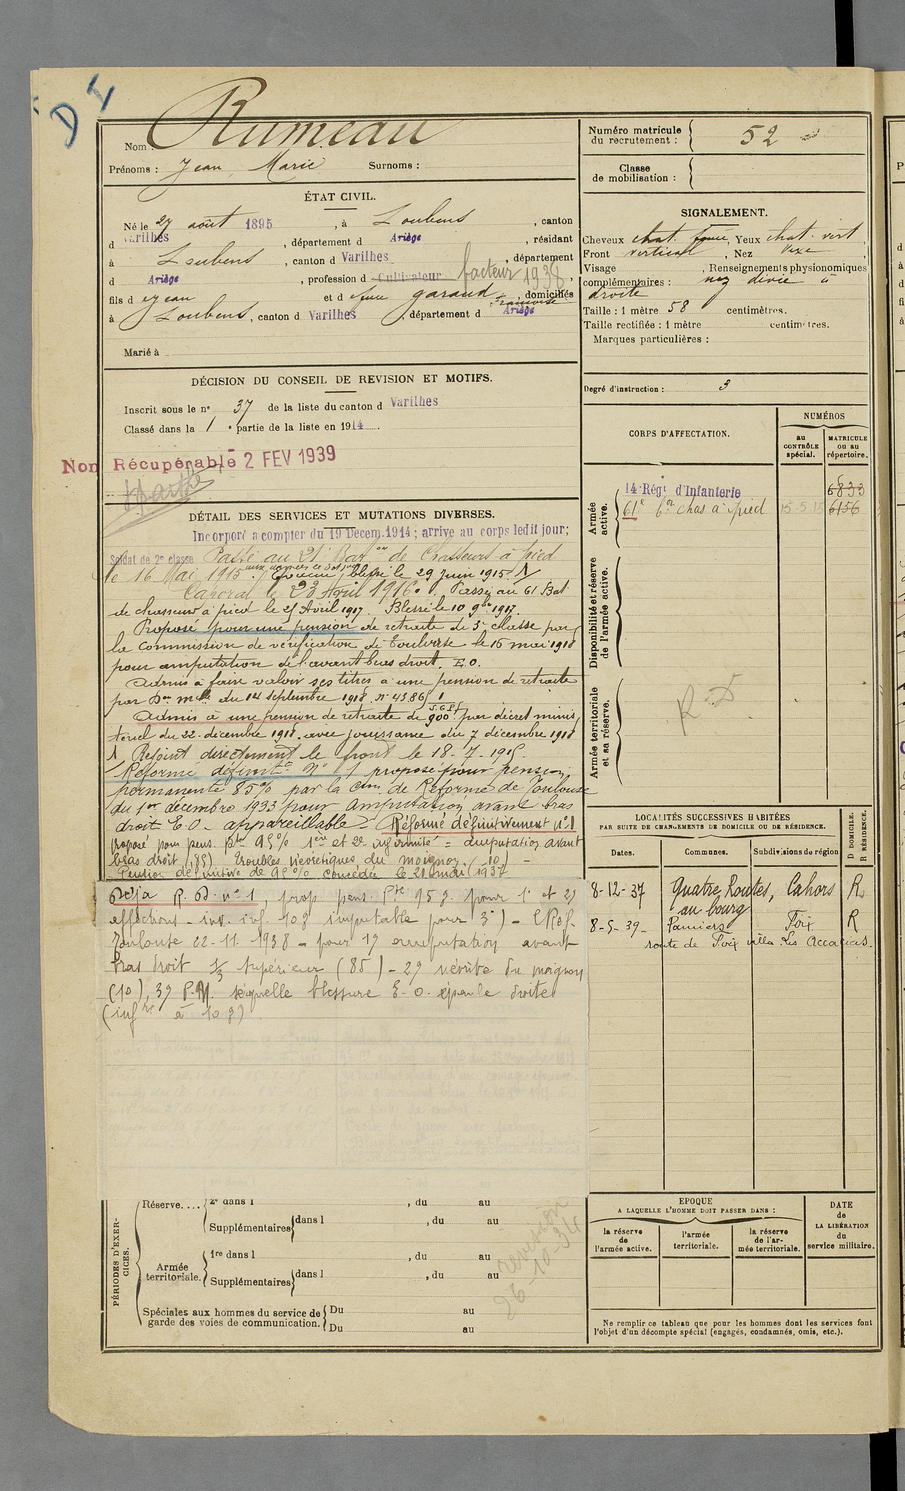 D
Nom : Rumeau
Prénoms : Jean Marie Surnoms :
ÉTAT CIVIL.
Né le 27 août 1895, à Loubens, canton
d Varilhes, département d Ariège, résidant
à Loubens, canton d Varilhes, département
d Ariège, profession d Cultivateur facteur 1938,
fils d Jean et d feue Garaud Françoise, domiciliés
à Loubens, canton d Varilhes, département d Ariège
Marié à
DÉCISION DU CONSEIL DE REVISION ET MOTIFS.
Inscrit sous le n° 37 de la liste du canton d Varilhes
Classé dans la 1e partie de la liste en 1914
Non Récupérable 2 FEV 1939
DÉTAIL DES SERVICES ET MUTATIONS DIVERSES.
Incorporé a compter du 19 Decem. 1914; arrive au corps ledit jour;
Soldat de 2e classe Passé au 21e Baton de Chasseurs à pied
le 16 Mai 1915 aux armées ce dit jour blessé le 29 juin 1915 /1
Caporal le 23 Avril 1916. Passé au 61 Bat
de chasseur à pied le 25 Avril 1917. Blessé le 10 9bre 1917.
Proposé pour une pension de retraite de 5e classe par
la commission de vérification de Toulouse le 15 mai 1918
pour amputation de l'avant bras droit. E.O.
Admis à faire valoir ses titres à une pension de retraite
par Don mlle du 14 septembre 1918. N° 4386 J.G.Pf
Admis à une pension de retraite de 900f par décret minis
tériel du 22 décembre 1918. avec jouissance du 7 décembre 1918
/1 Rejoint directement le front le 18-7-1915
Réformé définitif N° 1 proposé pour pension
permanente 85% par la Cion de Réforme de Toulouse
du 1er décembre 1933 pour amputation avant bras
droit E.O - appareillable - Réformé définitivement n° 1
proposé pour pens. pte 95% 1ère et 2e infirmité = amputation avant
bras droit (85) troubles névritiques du moignon (10) -
Pension définitive de 95% concédée le 21 mai 1937
Déjà R. D. n° 1, prop. pens. Pte 95 %. pour 1° et 2°
affections - ind. inf. 10% imputable pour 3°) - C Réf.
Toulouse 22-11-1938 - pour 1° amputation avant
bras droit 1/3 supérieur (85) - 2° névrite du moignon
(10), 3° P.M. séquelle blessure E.O. épaule droite
(infre à 10%)
PÉRIODES D'EXERCICES.
Réserve.... 2e dans l , du au
Supplémentaires dans l , du au
Armée territoriale. 1re dans l , du au
Supplémentaires dans l , du au
Spéciales aux hommes du service de garde des voies de communication. Du au
Du au
révision
26-10-34
Numéro matricule du recrutement : 52
Classe de mobilisation :
SIGNALEMENT.
Cheveux chat. foncé, Yeux chat. vert,
Front vertical, Nez
Visage , Renseignements physionomiques
complémentaires : nez dévié à
droite
Taille : 1 mètre 58 centimètres.
Taille rectifiée : 1 mètre centimètres.
Marques particulières :
Degré d'instruction : 3
CORPS D'AFFECTATION.
NUMÉROS
au CONTRÔLE spécial.
MATRICULE ou au répertoire.
Armée active.
14 Régt d'Infanterie 6833
61e bon chas à pied 15-5-15 6156
Disponibilité et réserve de l'armée active.
Armée territoriale et sa réserve.
R. D
LOCALITÉS SUCCESSIVES HABITÉES
PAR SUITE DE CHANGEMENTS DE DOMICILE OU DE RÉSIDENCE.
D DOMICILE. R RÉSIDENCE.
Dates. Communes. Subdivisions de région
8-12-37 Quatre Routes, Cahors R
au bourg
8-5-39- Pamiers Foix R
route de Foix villa les Accacias.
EPOQUE
A LAQUELLE L'HOMME DOIT PASSER DANS :
la réserve de l'armée active.
l'armée territoriale.
la réserve de l'armée territoriale.
DATE de LA LIBÉRATION du service militaire.
Ne remplir ce tableau que pour les hommes dont les services font
l'objet d'un décompte spécial (engagés, condamnés, omis, etc.).